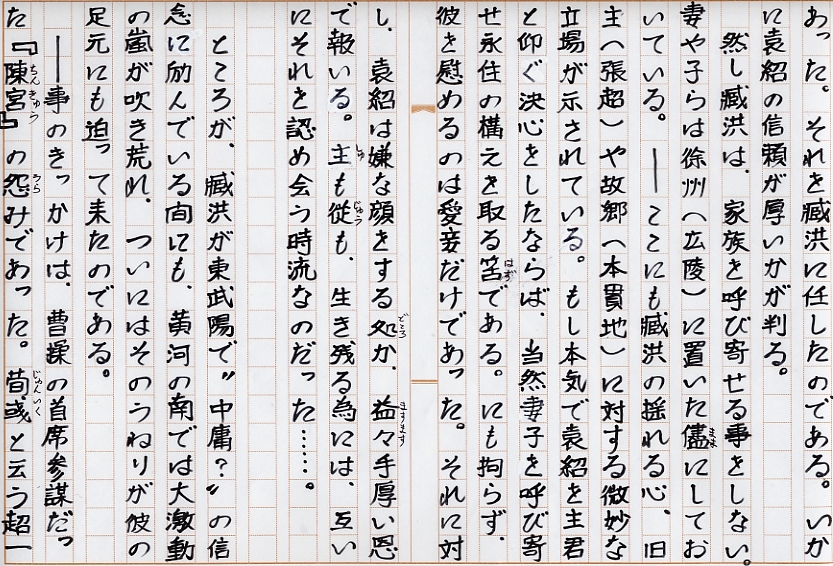 あった。それを臧洪に任したのである。いか
に袁紹の信頼が厚いかが判る。
然し臧洪は、家族を呼び寄せる事をしない。
妻や子らは徐州(広陵)に置いた儘にしてお
いている。──ここにも臧洪の揺れる心、旧
主(張超)や故郷(本貫地)に対する微妙な
立場が示されている。もし本気で袁紹を主君
と仰ぐ決心をしたならば、当然妻子を呼び寄
せ永住の構えを取る筈である。にも拘らず、
彼を慰めるのは愛妾だけであった。それに対
し、袁紹は嫌な顔をする処か、益々手厚い恩
で報いる。主も従も、生き残る為には、互い
にそれを認め会う時流なのだった……。
ところが、臧洪が東武陽で〝中庸?〟の信
念に励んでいる間にも、黄河の南では大激動
の嵐が吹き荒れ、ついにはそのうねりが彼の
足元にも迫って来たのである。
──事のきっかけは、曹操の首席参謀だっ
た『陳宮』の怨みであった。荀彧と云う超一